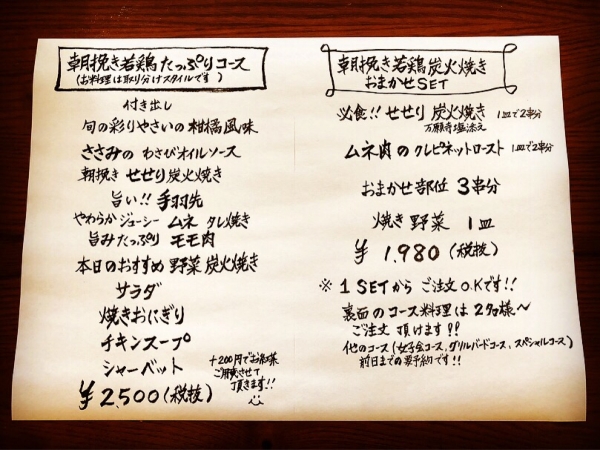 朝挽き若鶏たっぷりコース
(お料理は取り分けスタイルです)
付き出し
旬の彩りやさいの柑橘風味
ささみの わさびオイルソース
朝挽き せせり炭火焼き
旨い!! 手羽先
やわらかジューシー ムネ タレ焼き
旨みたっぷり モモ肉
本日のおすすめ 野菜炭火焼き
サラダ
焼きおにぎり
チキンスープ
シャーベット
¥2,500(税抜)
+200円でお雑炊
ご用意させて
頂きます!!
朝挽き若鶏炭火焼き
おまかせSET
必食!! せせり 炭火焼き 1皿で2串分
万願寺塩添え
ムネ肉のクレピネットロースト 1皿で2串分
おまかせ部位 3串分
焼き野菜 1皿
¥1,980(税抜)
※1SETから ご注文O.Kです!!
裏面のコース料理は2名様〜
ご注文 頂けます!!
他のコース(女子会コース、グリルバードコース、スペシャルコース)
前日までの要予約です!!